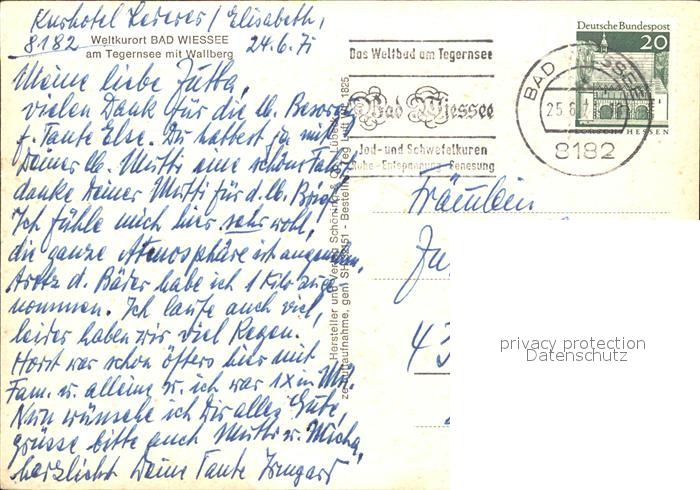 Kurhotel Lederer / Elisabeth,
8182
24.6.71
Weltkurort BAD WIESSEE
am Tegernsee mit Wallberg
Meine liebe Jutta,
vielen Dank für die lb. Besorg.
f. Tante Else. Du hattest ja mit
Deiner lb. Mutti eine schöne Fahrt
danke Deiner Mutti für d. lb. Brief
Ich fühle mich hier sehr wohl,
die ganze Atmosphäre ist angenehm,
Trotz d. Bäder habe ich 1 Kilo zuge-
nommen. Ich laufe auch viel,
leider haben wir viel Regen.
Horst war schon öfters hier mit
Fam. u. alleine u. ich war 1x in
Nun wünsche ich Dir alles Gute,
grüsse bitte auch Mutti u. Micha,
herzlichst Deine Tante Irmgard
Das Weltbad am Tegernsee
Bad Wiessee
Jod- und Schwefelkuren
Ruhe - Entspannung - Genesung
Deutsche Bundespost
20
HESSEN
BAD WIESSEE
25.6.71
8182
Hersteller und Verlag Schöning & Co., Lübeck
Luft 1825
Fräulein
43
privacy protection
Datenschutz